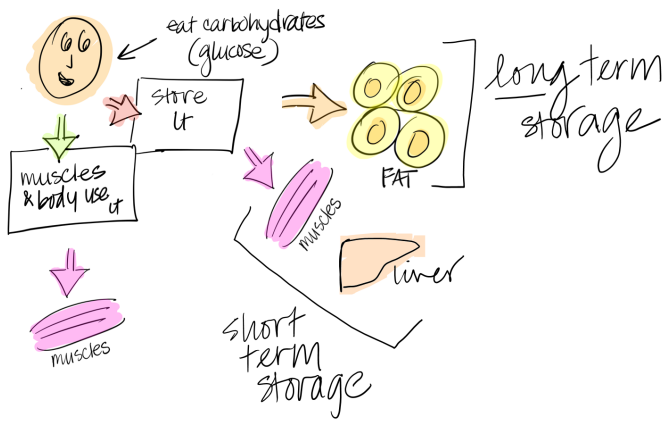 eat carbohydrates
(glucose)
store
it
muscles
& body use
it
FAT
long term
storage
muscles
liver
muscles
short
term
storage